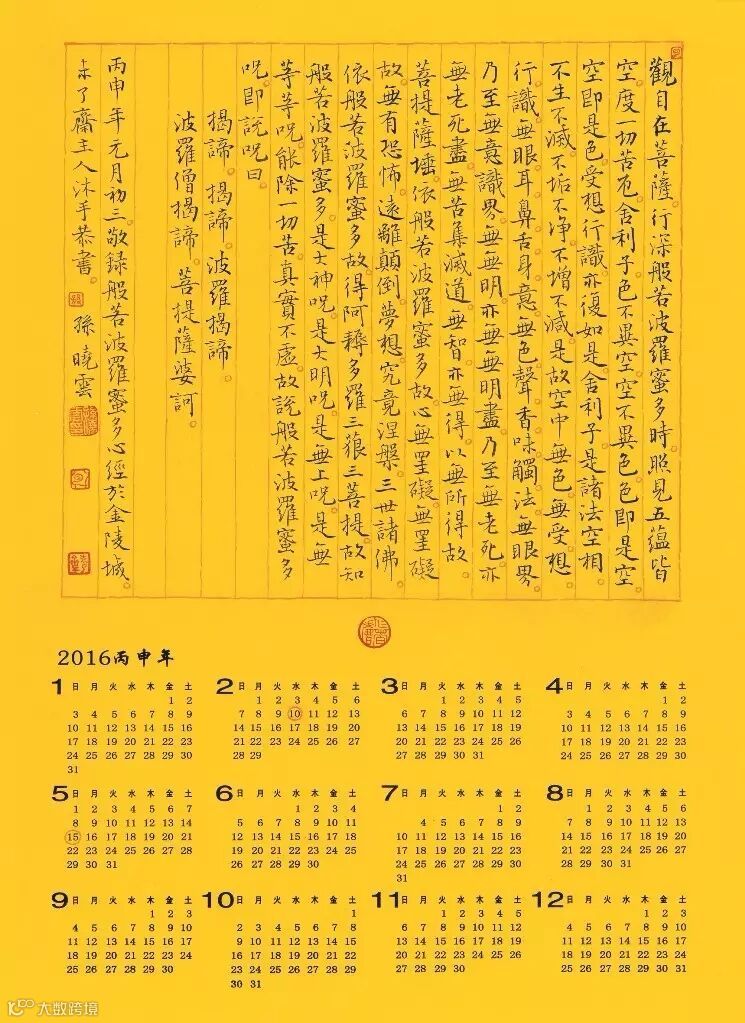 觀自在菩薩行深般若波羅蜜多時照見五蘊皆
空度一切苦厄舍利子色不異空空不異色色即是空
空即是色受想行識亦復如是舍利子是諸法空相
不生不滅不垢不净不增不減是故空中無色無受想
行識無眼耳鼻舌身意無色聲香味觸法無眼界
乃至無意識界無無明亦無無明盡乃至無老死亦
無老死盡無苦集滅道無智亦無得以無所得故
菩提薩埵依般若波羅蜜多故心無罣礙無罣礙
故無有恐怖遠離顛倒夢想究竟涅槃三世諸佛
依般若波羅蜜多故得阿耨多羅三藐三菩提故知
般若波羅蜜多是大神咒是大明咒是無上咒是無
等等咒能除一切苦真實不虛故說般若波羅蜜多
咒即說咒曰
揭諦揭諦波羅揭諦
波羅僧揭諦菩提薩婆訶
丙申年元月初三敬録般若波羅蜜多心經於金陵城
未了齋主人沐手恭書 孫曉雲
2016丙申年
1 日 月 火 水 木 金 土
1 2
3 4 5 6 7 8 9
10 11 12 13 14 15 16
17 18 19 20 21 22 23
24 25 26 27 28 29 30
31
2 日 月 火 水 木 金 土
1 2 3 4 5 6
7 8 9 10 11 12 13
14 15 16 17 18 19 20
21 22 23 24 25 26 27
28 29
3 日 月 火 水 木 金 土
1 2 3 4 5
6 7 8 9 10 11 12
13 14 15 16 17 18 19
20 21 22 23 24 25 26
27 28 29 30 31
4 日 月 火 水 木 金 土
1 2
3 4 5 6 7 8 9
10 11 12 13 14 15 16
17 18 19 20 21 22 23
24 25 26 27 28 29 30
5 日 月 火 水 木 金 土
1 2 3 4 5 6 7
8 9 10 11 12 13 14
15 16 17 18 19 20 21
22 23 24 25 26 27 28
29 30 31
6 日 月 火 水 木 金 土
1 2 3 4
5 6 7 8 9 10 11
12 13 14 15 16 17 18
19 20 21 22 23 24 25
26 27 28 29 30
7 日 月 火 水 木 金 土
1 2
4 5 6 7 8 9
10 11 12 13 14 15 16
17 18 19 20 21 22 23
24 25 26 27 28 29 30
31
8 日 月 火 水 木 金 土
1 2 3 4 5 6
7 8 9 10 11 12 13
14 15 16 17 18 19 20
21 22 23 24 25 26 27
28 29 30 31
9 日 月 火 水 木 金 土
1 2 3
4 5 6 7 8 9 10
11 12 13 14 15 16 17
18 19 20 21 22 23 24
25 26 27 28 29 30
10 日 月 火 水 木 金 土
1
2 3 4 5 6 7 8
9 10 11 12 13 14 15
16 17 18 19 20 21 22
23 24 25 26 27 28 29
30 31
11 日 月 火 水 木 金 土
1 2 3 4 5
6 7 8 9 10 11 12
13 14 15 16 17 18 19
20 21 22 23 24 25 26
27 28 29 30
12 日 月 火 水 木 金 土
1 2 3
4 5 6 7 8 9 10
11 12 13 14 15 16 17
18 19 20 21 22 23 24
25 26 27 28 29 30 31
大数跨境